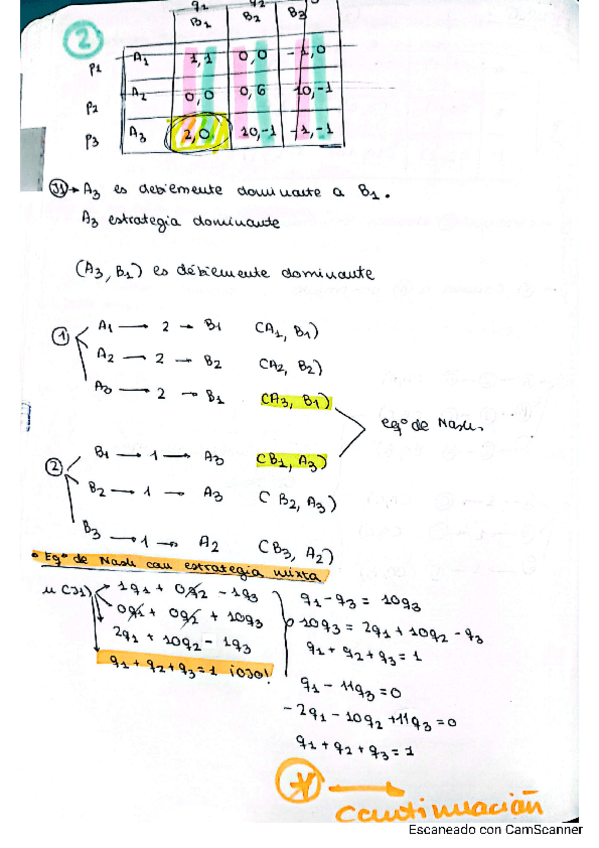 q1 q2
B1 B2 B3
2
P1 A1 1,1 0,0 -1,0
P2 A2 0,0 0,6 10,-1
P3 A3 2,0 10,-1 -1,-1
J1 → A3 es debilmente dominante a B1.
A3 estrategia dominante
(A3, B1) es débilmente dominante
1 A1 → 2 → B1 (A1, B1)
A2 → 2 → B2 (A2, B2)
A3 → 2 → B1 (A3, B1)
eqº de Nash.
2 B1 → 1 → A3 (B1, A3)
B2 → 1 → A3 (B2, A3)
B3 → 1 → A2 (B3, A2)
• Eqº de Nash con estrategia mixta
u(J1) 1q1 + 0q2 - 1q3
0q1 + 0q2 + 10q3
2q1 + 10q2 - 1q3
q1 + q2 + q3 = 1 ¡OJO!
q1 - q3 = 10q3
10q3 = 2q1 + 10q2 - q3
q1 + q2 + q3 = 1
q1 - 11q3 = 0
-2q1 - 10q2 + 11q3 = 0
q1 + q2 + q3 = 1
→ continuación
Escaneado con CamScanner